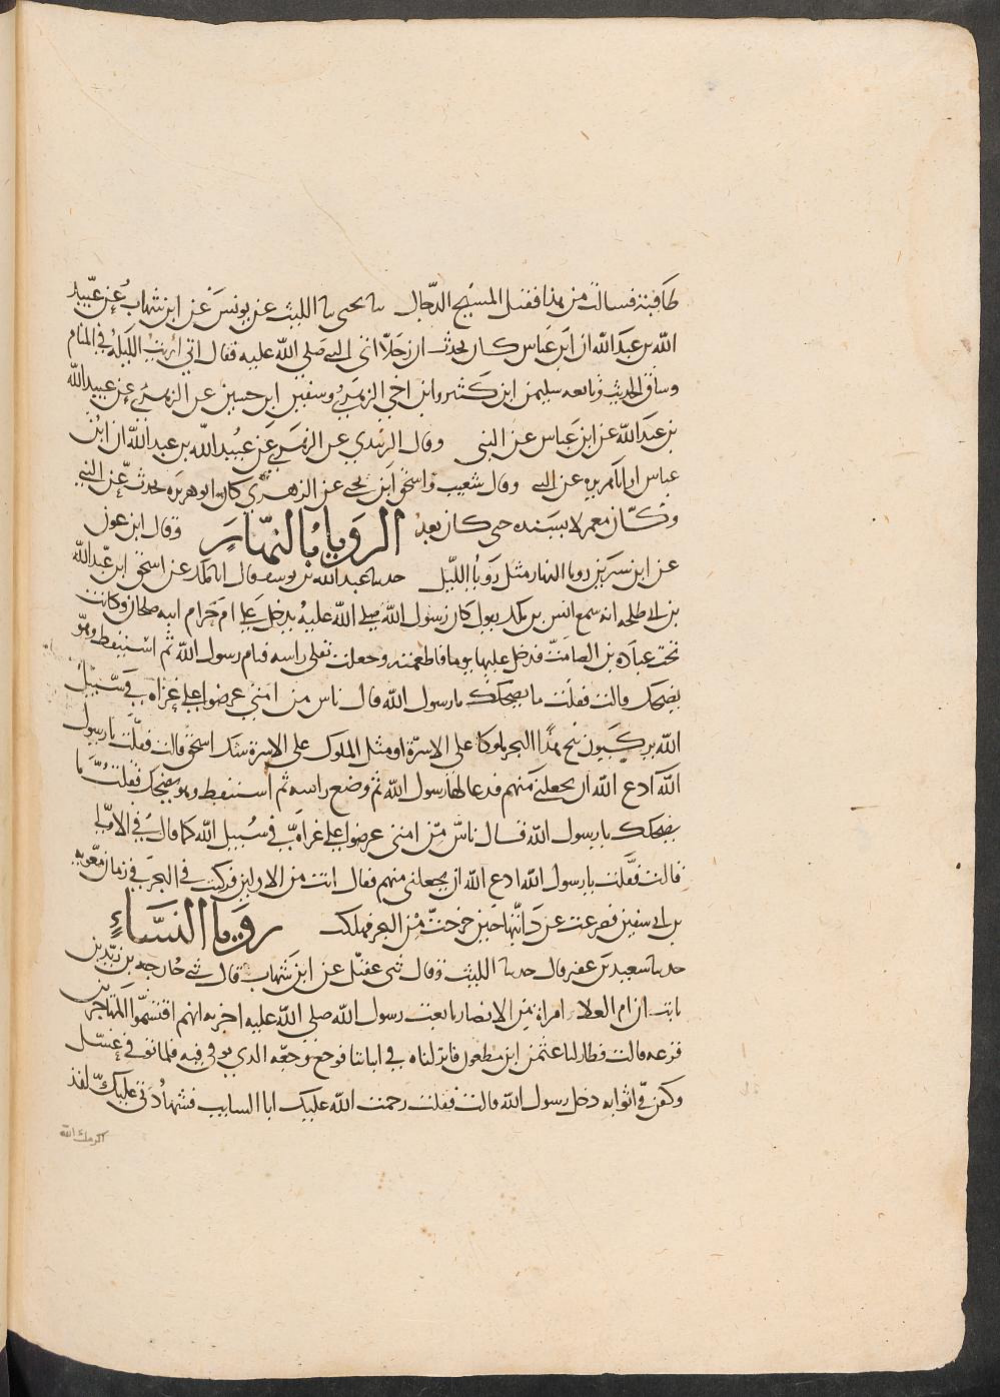 طافية فسالت من هذا فقيل المسيح الدجال ثنا يحيى ثنا الليث عن يونس عن ابن شهاب عن عبيد
الله بن عبدالله ان ابن عباس كان يحدث ان رجلا اتى النبي صلى الله عليه فقال اني اريت الليلة في المنام
وساق الحديث وتابعه سليمن ابن كثير وابن اخي الزهري وسفين ابن حسين عن الزهري عن عبيدالله
بن عبدالله عن ابن عباس عن النبي وقال الزبيدي عن الزهري عن عبيدالله بن عبدالله ان ابن
عباس او ابا هريرة عن النبي وقال شعيب واسحق ابن يحيى عن الزهري كان ابو هريرة يحدث عن النبي
وكان معمر لا يسنده حتى كان بعد الرويا بالنهار وقال ابن عون
عن ابن سيرين رويا النهار مثل رويا الليل حدثنا عبدالله بن يوسف قال انا ملك عن اسحق ابن عبدالله
بن ابي طلحه انه سمع انس بن ملك يقول كان رسول الله صلى الله عليه يدخل على ام حرام ابنه ملحان وكانت
تحت عباده بن الصامت فدخل عليها يوما فاطعمته وجعلت تفلى راسه فنام رسول الله ثم استيقظ وهو
يضحك قالت فقلت ما يضحكك يا رسول الله قال ناس من امتي عرضوا علي غزاه في سبيل
الله يركبون ثبج هذا البحر ملوكا على الاسرة او مثل الملوك على الاسرة شك اسحق قالت فقلت يا رسول
الله ادع الله ان يجعلني منهم فدعا لها رسول الله ثم وضع راسه ثم استيقظ وهو يضحك فقلت ما
يضحكك يا رسول الله قال ناس من امتي عرضوا علي غزاة في سبيل الله كما قال في الاولى
قالت فقلت يا رسول الله ادع الله ان يجعلني منهم فقال انت من الاولين فركبت في البحر في زمان معويه
بن ابي سفين فصرعت عن دابتها حين خرجت من البحر فهلكت رويا النساء
حدثنا سعيد بن عفير قال حدثنا الليث قال ثني عقيل عن ابن شهاب قال ثني خارجه بن زيد بن
ثابت ان ام العلا امراة من الانصار بايعت رسول الله صلى الله عليه اخبرته انهم اقتسموا المهاجرين
قرعه قالت فطار لنا عثمن ابن مظعون فانزلناه في ابياتنا فوجع وجعه الذي توفي فيه فلما توفي غسل
وكفن في اثوابه دخل رسول الله قالت فقلت رحمت الله عليك ابا السايب فشهادتي عليك لقد
اكرمك الله